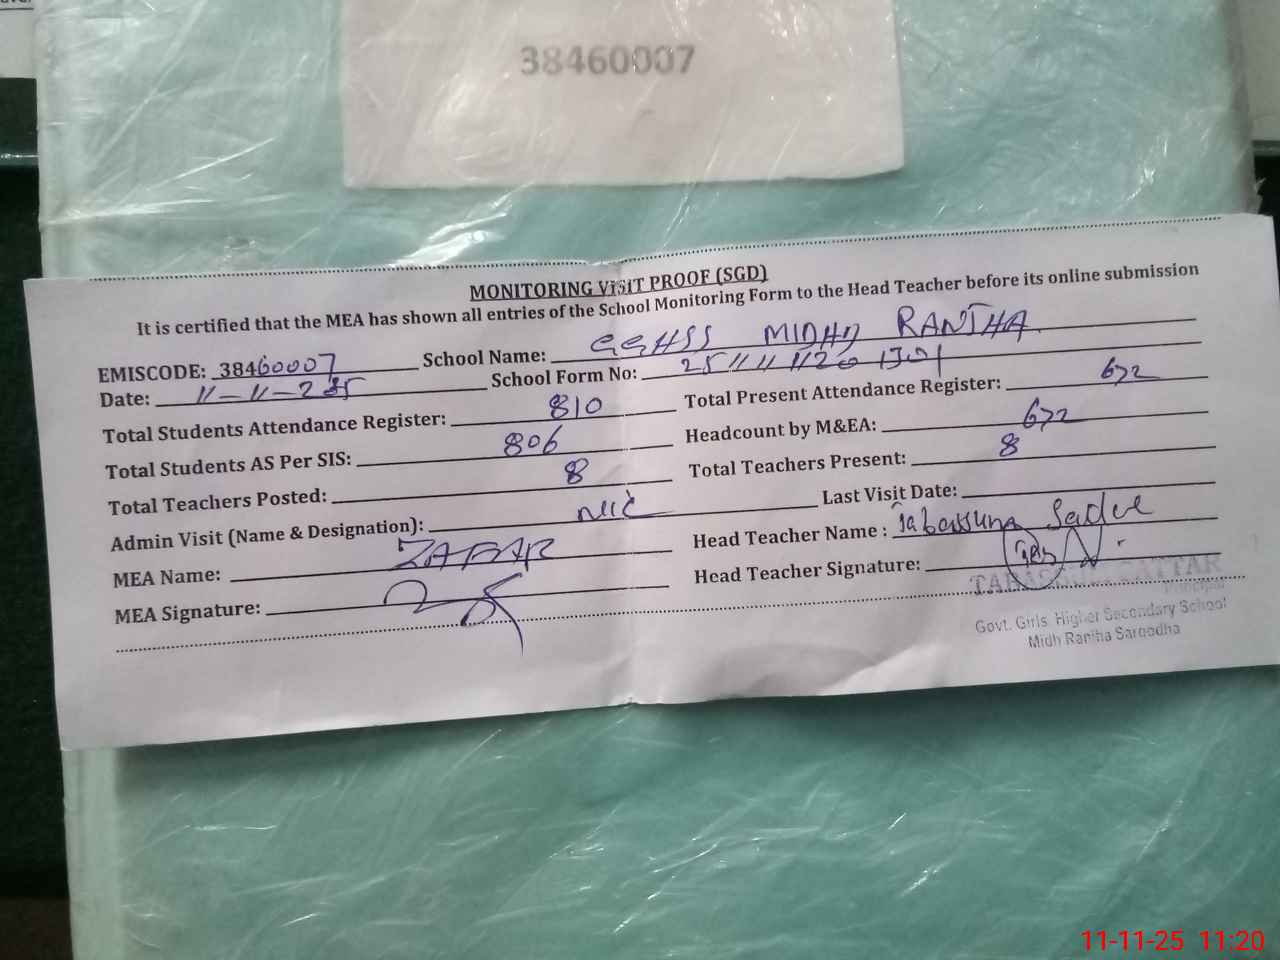 38460007
MONITORING ViSiT PROOF (SGD)
It is certified that the MEA has shown all entries of the School Monitoring Form to the Head Teacher before its online submission
EMISCODE: 38460007 School Name: GGHSS MIDHD RANJHA
Date: 11-11-2 School Form No:
Total Students Attendance Register: 810 Total Present Attendance Register: 672
Total Students AS Per SIS: 806 Headcount by M&EA: 672
Total Teachers Posted: 8 Total Teachers Present: 8
Admin Visit (Name & Designation): Last Visit Date:
MEA Name: ZAFAR Head Teacher Name : Tabassum
MEA Signature: Head Teacher Signature:
SATTAR
Principal
Govt. Girls Higher Secondary School
Midh Ranjha Sargodha
11-11-25 11:20